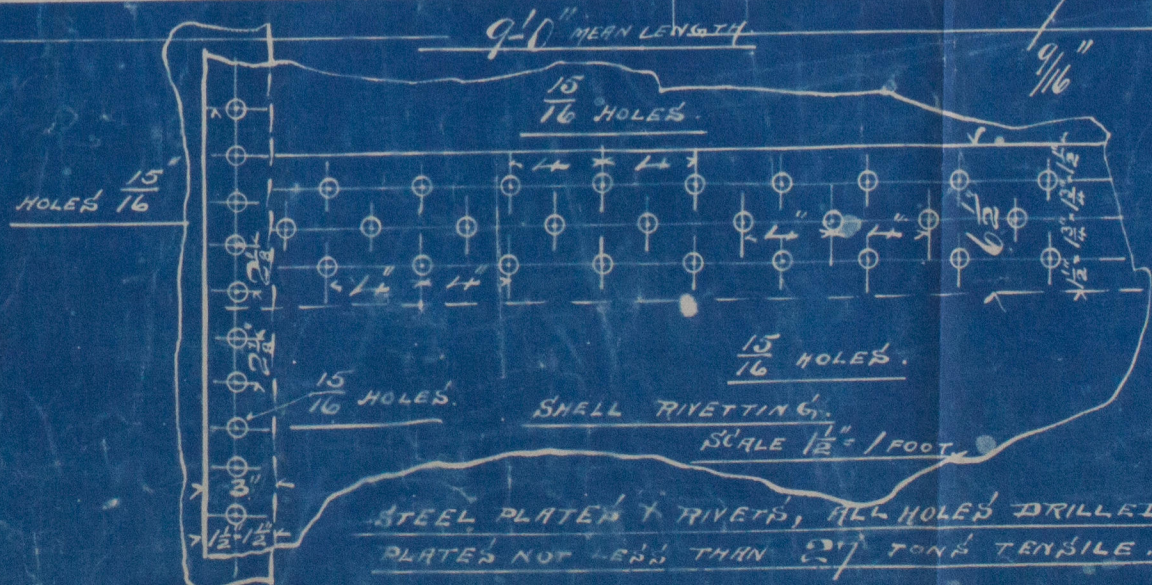 9'-0" MEAN LENGTH.
9/16"
15/16 HOLES.
HOLES 15/16"
4" 4"
1 1/2" 1 3/4" 1 3/4" 1 1/2"
6 1/2"
4" 4"
4" 4"
2 1/8"
2 1/8"
15/16 HOLES.
15/16 HOLES.
SHELL RIVETTING.
SCALE 1 1/2" = 1 FOOT
3"
1 1/2" 1 1/2"
STEEL PLATES & RIVETS, ALL HOLES DRILLED
PLATES NOT LESS THAN 27 TONS TENSILE.